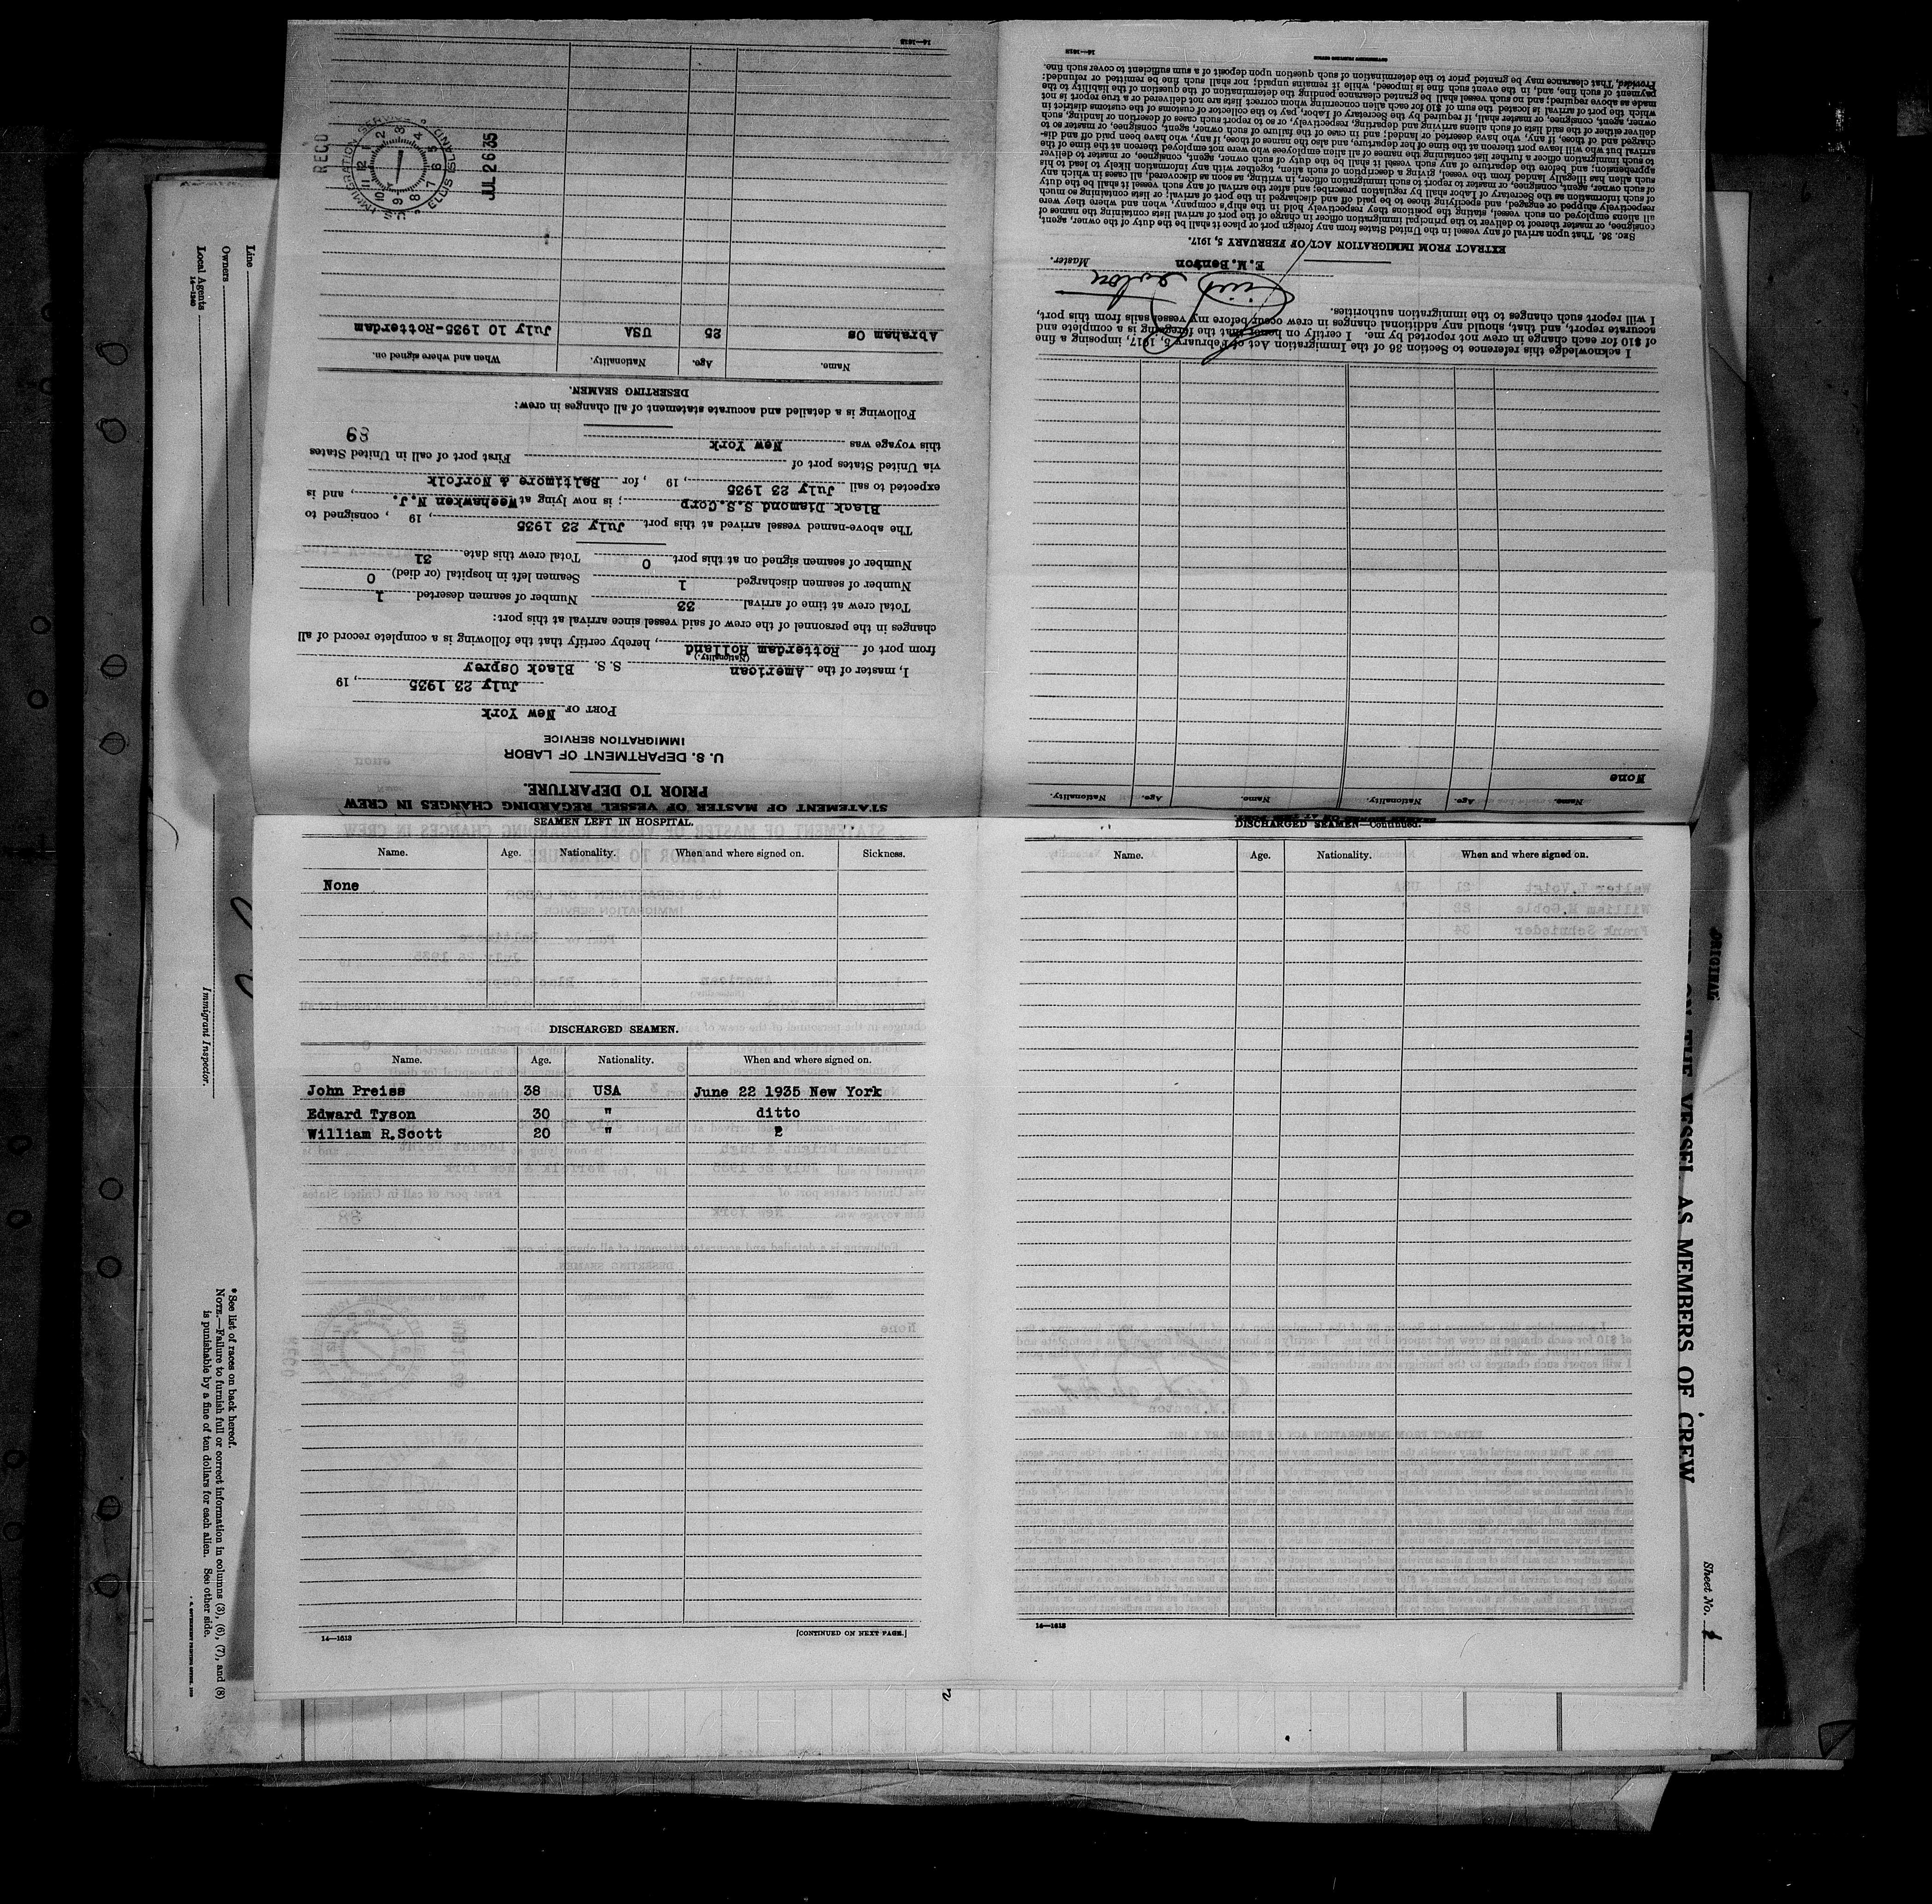 STATEMENT OF MASTER OF VESSEL REGARDING CHANGES IN CREW
PRIOR TO DEPARTURE.
U. S. DEPARTMENT OF LABOR
IMMIGRATION SERVICE
PORT OF New York
July 23 1935, 19
I, master of the American S. S. Black Osprey
(Nationality)
from port of Rotterdam Holland, hereby certify that the following is a complete record of all
changes in the personnel of the crew of said vessel since arrival at this port:
Total crew at time of arrival 33 Number of seamen deserted 1
Number of seamen discharged 1 Seamen left in hospital (or died) 0
Number of seamen signed on at this port 0 Total crew this date 31
The above-named vessel arrived at this port July 23 1935, 19 , consigned to
Black Diamond S.S.Corp ; is now lying at Weehawken N.J., and is
expected to sail July 23 1935, 19 , for Baltimore & Norfolk
via United States port of First port of call in United States
this voyage was New York
89
Following is a detailed and accurate statement of all changes in crew:
DESERTING SEAMEN.
Name. Age. Nationality. When and where signed on.
Abraham Os 25 USA July 10 1935-Rotterdam
REC'D
IMMIGRATION SERVICE
ELLIS ISLAND
JUL 26 35
14—1613
Name. Age. Nationality. Name. Age. Nationality.
None
I acknowledge this reference to Section 36 of the Immigration Act of February 5, 1917, imposing a fine
of $10 for each change in crew not reported by me. I certify on honor that the foregoing is a complete and
accurate report, and that, should any additional changes in crew occur before my vessel sails from this port,
I will report such changes to the immigration authorities.
E.M.Benton Master.
EXTRACT FROM IMMIGRATION ACT OF FEBRUARY 5, 1917.
SEC. 36. That upon arrival of any vessel in the United States from any foreign port or place it shall be the duty of the owner, agent,
consignee, or master thereof to deliver to the principal immigration officer in charge of the port of arrival lists containing the names of
all aliens employed on such vessel, stating the positions they respectively hold in the ship's company, when and where they were
respectively shipped or engaged, and specifying those to be paid off and discharged in the port of arrival; or lists containing so much
of such information as the Secretary of Labor shall by regulation prescribe; and after the arrival of any such vessel it shall be the duty
of such owner, agent, consignee, or master to report to such immigration officer, in writing, as soon as discovered, all cases in which any
such alien has illegally landed from the vessel, giving a description of such alien, together with any information likely to lead to his
apprehension; and before the departure of any such vessel it shall be the duty of such owner, agent, consignee, or master to deliver
to such immigration officer a further list containing the names of all alien employees who were not employed thereon at the time of the
arrival but who will leave port thereon at the time of her departure, and also the names of those, if any, who have been paid off and dis-
charged and of those, if any, who have deserted or landed; and in case of the failure of such owner, agent, consignee, or master so to
deliver either of the said lists of such aliens arriving and departing, respectively, or so to report such cases of desertion or landing, such
owner, agent, consignee, or master shall, if required by the Secretary of Labor, pay to the collector of customs of the customs district in
which the port of arrival is located the sum of $10 for each alien concerning whom correct lists are not delivered or a true report is not
made as above required; and no such vessel shall be granted clearance pending the determination of the question of the liability to the
payment of such fine, and, in the event such fine is imposed, while it remains unpaid; nor shall such fine be remitted or refunded:
Provided, That clearance may be granted prior to the determination of such question upon deposit of a sum sufficient to cover such fine.
14—1613
SEAMEN LEFT IN HOSPITAL.
Name. Age. Nationality. When and where signed on. Sickness.
None
DISCHARGED SEAMEN.
Name. Age. Nationality. When and where signed on.
John Preiss 38 USA June 22 1935 New York
Edward Tyson 30 " ditto
William R.Scott 20 "
14—1613 [CONTINUED ON NEXT PAGE.]
DISCHARGED SEAMEN—Continued.
Name. Age. Nationality. When and where signed on.
14—1613
Line
Owners
Local Agents
14—1240
Immigrant Inspector.
* See list of races on back hereof.
NOTE.—Failure to furnish full or correct information in columns (3), (6), (7), and (8)
is punishable by a fine of ten dollars for each alien. See other side.
ORIGINAL
ON THE VESSEL AS MEMBERS OF CREW
Sheet No. 1